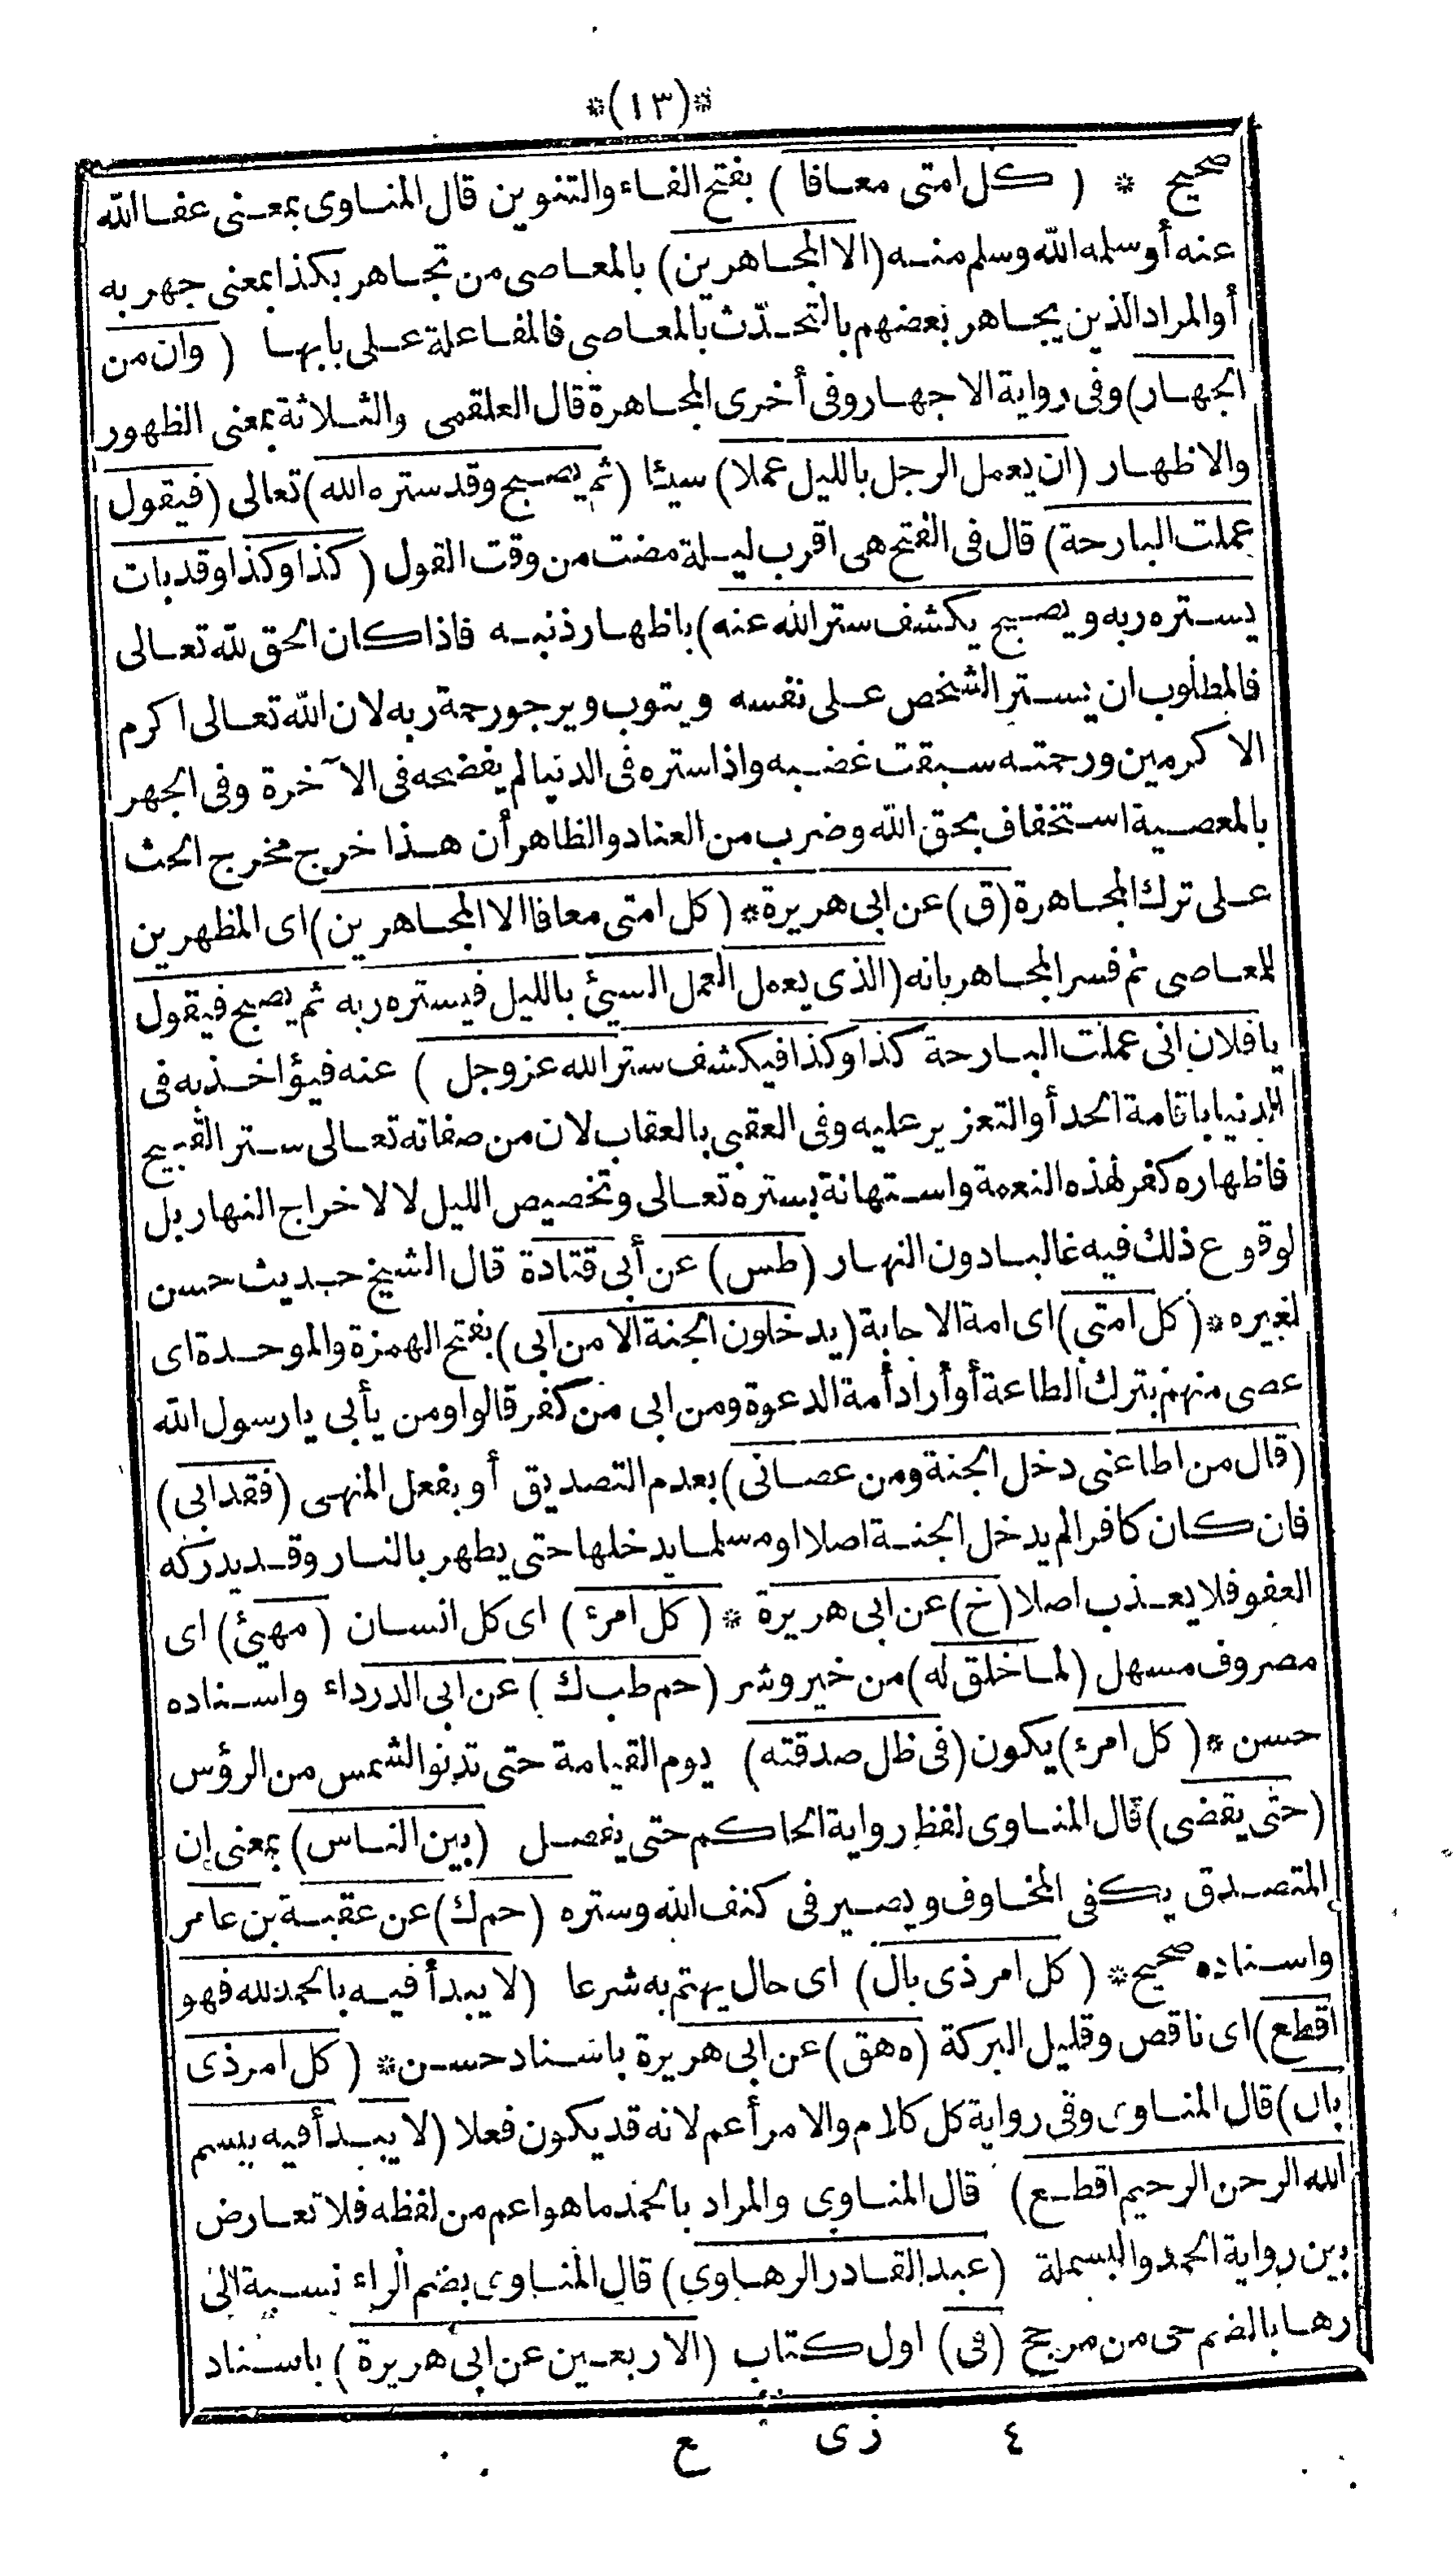 *(١٣)*
صحيح * (كل امتى معافا) بفتح الفاء والتنوين قال المناوى بمعنى عفا الله
عنه أوسلمه الله وسلم منه (الا المجاهرين) بالمعاصى من تجاهر بكذا بمعنى جهر به
أو المراد الذين يجاهر بعضهم بالتحدّث بالمعاصى فالمفاعلة على بابها (وان من
الجهار) وفى رواية الاجهار وفى أخرى المجاهرة قال العلقمى والثلاثة بمعنى الظهور
والاظهار (ان يعمل الرجل بالليل عملا) سيئا (ثم يصبح وقد ستره الله) تعالى (فيقول
عملت البارحة) قال فى الفتح هى اقرب ليلة مضت من وقت القول (كذا وكذا وقد بات
يستره ربه ويصبح يكشف ستر الله عنه) باظهار ذنبه فاذا كان الحق لله تعالى
فالمطلوب ان يستر الشخص على نفسه ويتوب ويرجو رحمة ربه لان الله تعالى اكرم
الاكرمين ورحمته سبقت غضبه واذا ستره فى الدنيا لم يفضحه فى الآخرة وفى الجهر
بالمعصية استخفاف بحق الله وضرب من العناد والظاهر أن هذا خرج مخرج الحث
على ترك المجاهرة (ق) عن ابى هريرة * (كل امتى معافا الا المجاهرين) اى المظهرين
للمعاصى ثم فسر المجاهر بانه (الذى يعمل العمل السيئ بالليل فيستره ربه ثم يصبح فيقول
يا فلان انى عملت البارحة كذا وكذا فيكشف ستر الله عز وجل) عنه فيؤاخذ به فى
الدنيا باقامة الحد أو التعزير عليه وفى العقبى بالعقاب لان من صفاته تعالى ستر القبيح
فاظهاره كفر لهذه النعمة واستهانة بستره تعالى وتخصيص الليل لا لاخراج النهار بل
لوقوع ذلك فيه غالبا دون النهار (طس) عن أبى قتادة قال الشيخ حديث حسن
لغيره * (كل امتى) اى امة الاجابة (يدخلون الجنة الا من ابى) بفتح الهمزة والموحدة اى
عصى منهم بترك الطاعة أو أراد أمة الدعوة ومن ابى من كفر قالوا ومن يأبى يا رسول الله
(قال من اطاعنى دخل الجنة ومن عصانى) بعدم التصديق أو بفعل المنهى (فقد ابى)
فان كان كافرا لم يدخل الجنة اصلا او مسلما يدخلها حتى يطهر بالنار وقد يدركه
العفو فلا يعذب اصلا (خ) عن ابى هريرة * (كل امرئ) اى كل انسان (مهيئ) اى
مصروف مسهل (لما خلق له) من خير وشر (حم طب ك) عن ابى الدرداء واسناده
حسن * (كل امرء) يكون (فى ظل صدقته) يوم القيامة حتى تدنو الشمس من الرؤس
(حتى يقضى) قال المناوى لفظ رواية الحاكم حتى يفصل (بين الناس) بمعنى ان
المتصدق يكفى المخاوف ويصير فى كنف الله وستره (حم ك) عن عقبة بن عامر
واسناده صحيح * (كل امر ذى بال) اى حال يهتم به شرعا (لا يبدأ فيه بالحمد لله فهو
اقطع) اى ناقص وقليل البركة (ه هق) عن ابى هريرة باسناد حسن * (كل امر ذى
بال) قال المناوى وفى رواية كل كلام والامر أعم لانه قد يكون فعلا (لا يبدأ فيه ببسم
الله الرحمن الرحيم اقطع) قال المناوى والمراد بالحمد ما هو اعم من لفظه فلا تعارض
بين رواية الحمد والبسملة (عبد القادر الرهاوى) قال المناوى بضم الراء نسبة الى
رها بالضم حى من مرجح (فى) اول كتاب (الاربعين عن ابى هريرة) باسناد
٤ زى ع